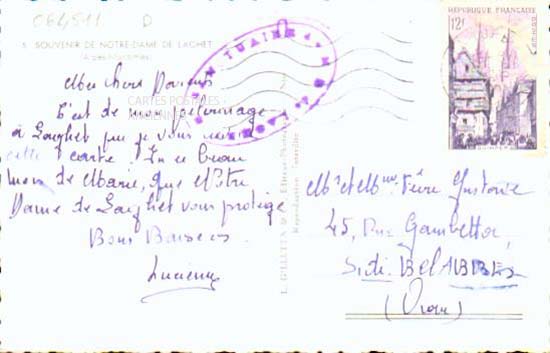 064511 D
5. SOUVENIR DE NOTRE-DAME DE LAGHET
(Alpes-Maritimes)
Mes chers Parents
C'est de mon pelerinage
à Laghet que je vous
cette carte. En ce beau
mois de Marie, que Notre
Dame de Laghet vous protège
Bons Baisers
Lucienne
CARTES POSTALES
SANCTUAIRE
LAGHET
Reproduction interdite
REPUBLIQUE FRANÇAISE
12F
QUIMPER
Mr et Mme Fèvre Gustave
45, Rue Gambetta,
Sidi. Bel ABBES
(Oran)